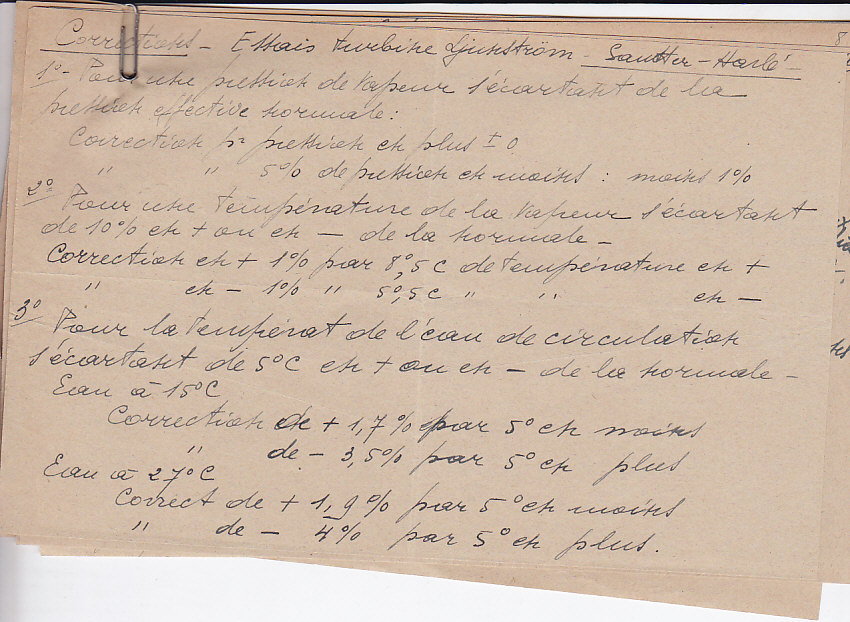 8
Corrections - Essais turbine Ljunström - Sautter-Harlé
1° - Pour une pression de vapeur s'écartant de la
pression effective normale :
Correction pr pression en plus ± 0
" " 5% de pression en moins : moins 1%
2° Pour une température de la vapeur s'écartant
de 10% en + ou en - de la normale -
Correction en + 1% par 8°,5 C de température en +
" en - 1% " 5°,5 C " " en -
3° Pour la températ de l'eau de circulation
s'écartant de 5°C en + ou en - de la normale -
Eau à 15°C
Correction de + 1,7% par 5° en moins
" de - 3,5% par 5° en plus
Eau à 27°C
Correct de + 1,9% par 5° en moins
" de - 4% par 5° en plus.